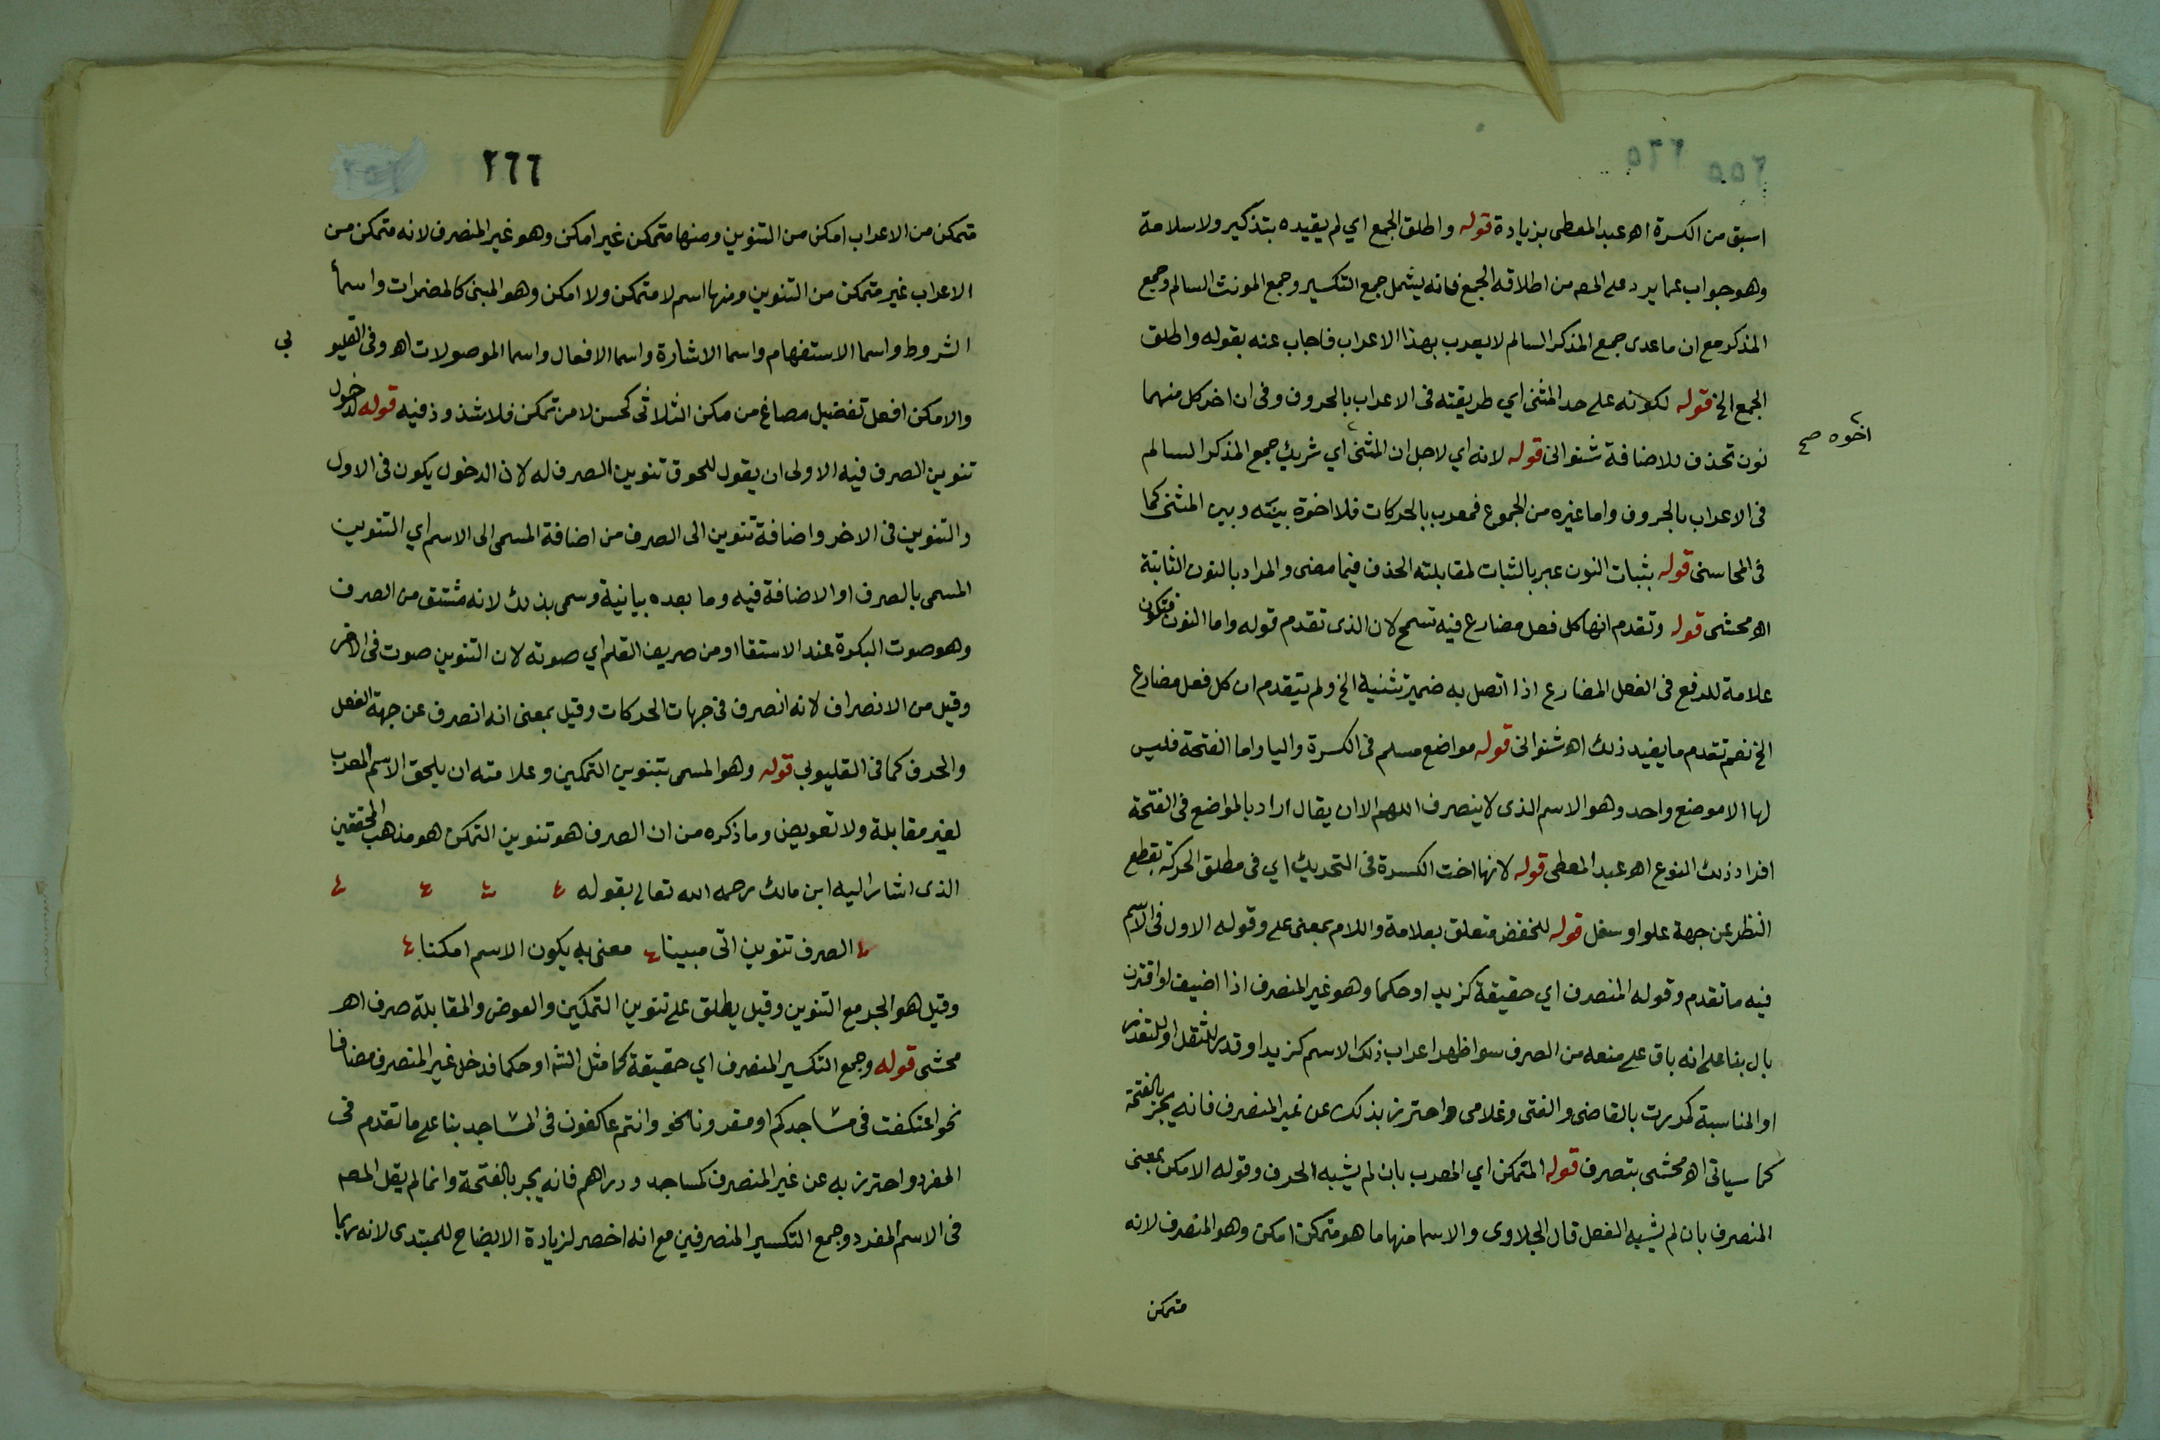 ٢٦٥ ٢٥٥
اسبق من الكسرة اه عبد المعطي بزيادة قوله واطلق الجمع اي لم يقيده بتذكير ولا سلامة
وهو جواب عما يرد على المص من اطلاقه الجمع فانه يشمل جمع التكسير وجمع المونث السالم وجمع
المذكر مع ان ما عدى جمع المذكر السالم لا يعرب بهذا الاعراب فاجاب عنه بقوله واطلق
الجمع الخ قوله لكونه على حد المثنى اي طريقته فى الاعراب بالحروف وفى ان اخر كل منهما
نون تحذف للاضافة شنوانى قوله لانه اي لاجل ان المثنى اي شريك جمع المذكر السالم
اخوه صح
فى الاعراب بالحروف واما غيره من الجموع فمعرب بالحركات فلا اخوة بينه وبين المثنى كما
فى المحاسنى قوله بثبات النون عبر بالثبات لمقابلته الحذف فيما مضى والمراد بالنون الثابتة
اه محشى قوله وتقدم انها كل فعل مضارع فيه تسمح لان الذى تقدم قوله واما النون فتكون
علامة للرفع فى الفعل المضارع اذا اتصل به ضمير تثنية الخ ولم يتقدم ان كل فعل مضارع
الخ نعم تقدم ما يفيد ذلك اه شنوانى قوله مواضع مسلم فى الكسرة واليا واما الفتحة فليس
لها الا موضع واحد وهو الاسم الذى لا ينصرف اللهم الا ان يقال اراد بالمواضع فى الفتحة
افراد ذلك النوع اه عبد المعطى قوله لانها اخت الكسرة فى التحريك اي فى مطلق الحركة بقطع
النظر عن جهة علو او سفل قوله للخفض متعلق بعلامة واللام بمعنى على وقوله الاول فى الاسم
فيه ما تقدم وقوله المنصرف اي حقيقة كزيد او حكما وهو غير المنصرف اذا اضيف او اقترن
بال بنا على انه باق على منعه من الصرف سوا ظهر اعراب ذلك الاسم كزيد او قدر للثقل او للتعذر
او المناسبة كمررت بالقاضى والفتى وغلامى واحترز بذلك عن غير المنصرف فانه يجر بالفتحة
كما سياتى اه محشى بتصرف قوله المتمكن اي المعرب بان لم يشبه الحرف وقوله الامكن بمعنى
المنصرف بان لم يشبه الفعل قال الجلاوى والاسما منها ما هو متمكن امكن وهو المنصرف لانه
متمكن
٢٦٦
متمكن من الاعراب امكن من التنوين ومنها متمكن غير امكن وهو غير المنصرف لانه متمكن من
الاعراب غير متمكن من التنوين ومنها اسم لا متمكن ولا امكن وهو المبنى كالمضمرات واسما
الشروط واسما الاستفهام واسما الاشارة واسما الافعال واسما الموصولات اه وفى القليو بي
والامكن افعل تفضيل مصاغ من مكن الثلاثى كحسن لا من تمكن فلا شذوذ فيه قوله لدخول
تنوين الصرف فيه الاولى ان يقول للحوق تنوين الصرف له لان الدخول يكون فى الاول
والتنوين فى الاخر واضافة تنوين الى الصرف من اضافة المسمى الى الاسم اي التنوين
المسمى بالصرف او الاضافة فيه وما بعده بيانية وسمى بذلك لانه مشتق من الصرف
وهو صوت البكرة عند الاستقا او من صريف القلم اي صوته لان التنوين صوت فى الاخر
وقيل من الانصراف لانه انصرف فى جهات الحركات وقيل بمعنى انه انصرف عن جهة الفعل
والحرف كما فى القليوبى قوله وهو المسمى بتنوين التمكين وعلامته ان يلحق الاسم المعرب
لغير مقابلة ولا تعويض وما ذكره من ان الصرف هو تنوين التمكن هو مذهب المحققين
الذى اشار اليه ابن مالك رحمه الله تعالى بقوله
الصرف تنوين اتى مبينا معنى به يكون الاسم امكنا
وقيل هو الجر مع التنوين وقيل يطلق على تنوين التمكين والعوض والمقابلة صرف اه
محشى قوله وجمع التكسير المنصرف اي حقيقة كما مثل الش او حكما فدخل غير المنصرف مضافا
نحو اعتكفت فى مساجدكم او مقرونا نحو وانتم عاكفون فى المساجد بنا على ما تقدم فى
المفرد واحترز به عن غير المنصرف كمساجد ودراهم فانه يجر بالفتحة وانما لم يقل المص
فى الاسم المفرد وجمع التكسير المنصرفين مع انه اخصر لزيادة الايضاح للمبتدى لانه ربما